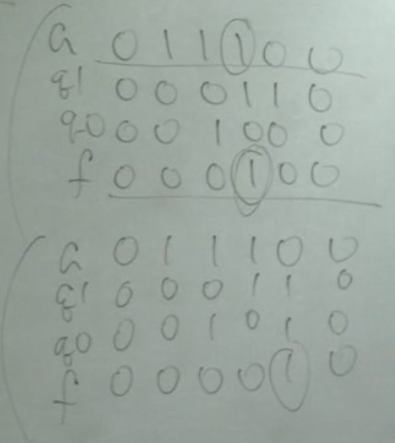 G 0 1 1 1 0 0
q1 0 0 0 1 1 0
q0 0 0 1 0 0 0
f 0 0 0 1 0 0
G 0 1 1 1 0 0
q1 0 0 0 1 1 0
q0 0 0 1 0 1 0
f 0 0 0 0 1 0